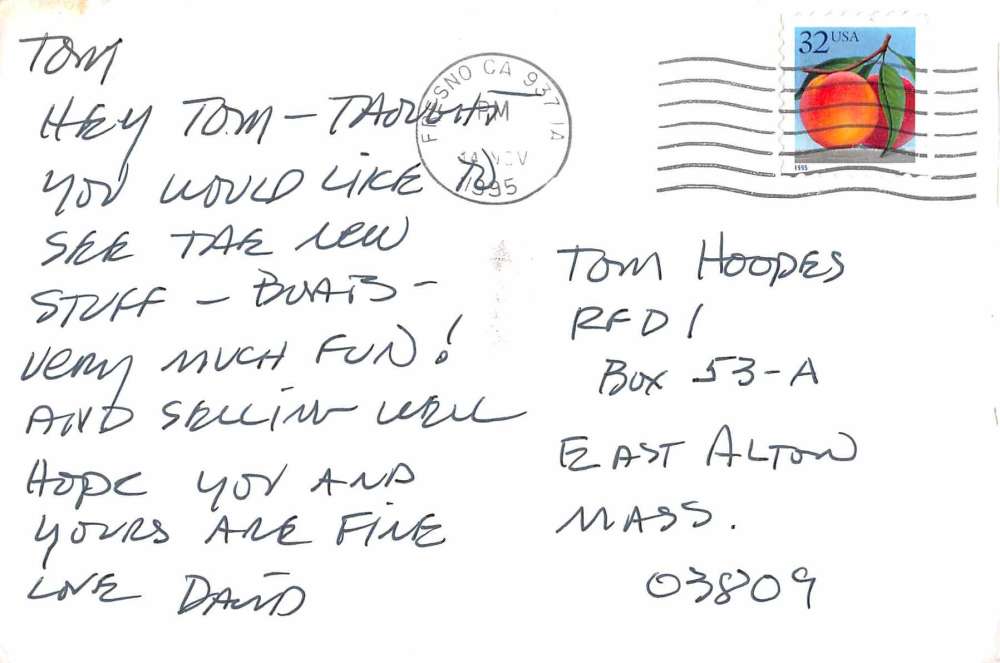 TOM
HEY TOM - THOUGHT
YOU WOULD LIKE TO
SEE THE NEW
STUFF - BOATS -
VERY MUCH FUN!
AND SELLING WELL
HOPE YOU AND
YOURS ARE FINE
LOVE DAVID
FRESNO CA 937 1A
PM
NOV
1995
32 USA
1995
TOM HOOPES
RFD 1
BOX 53-A
EAST ALTON
MASS.
03809